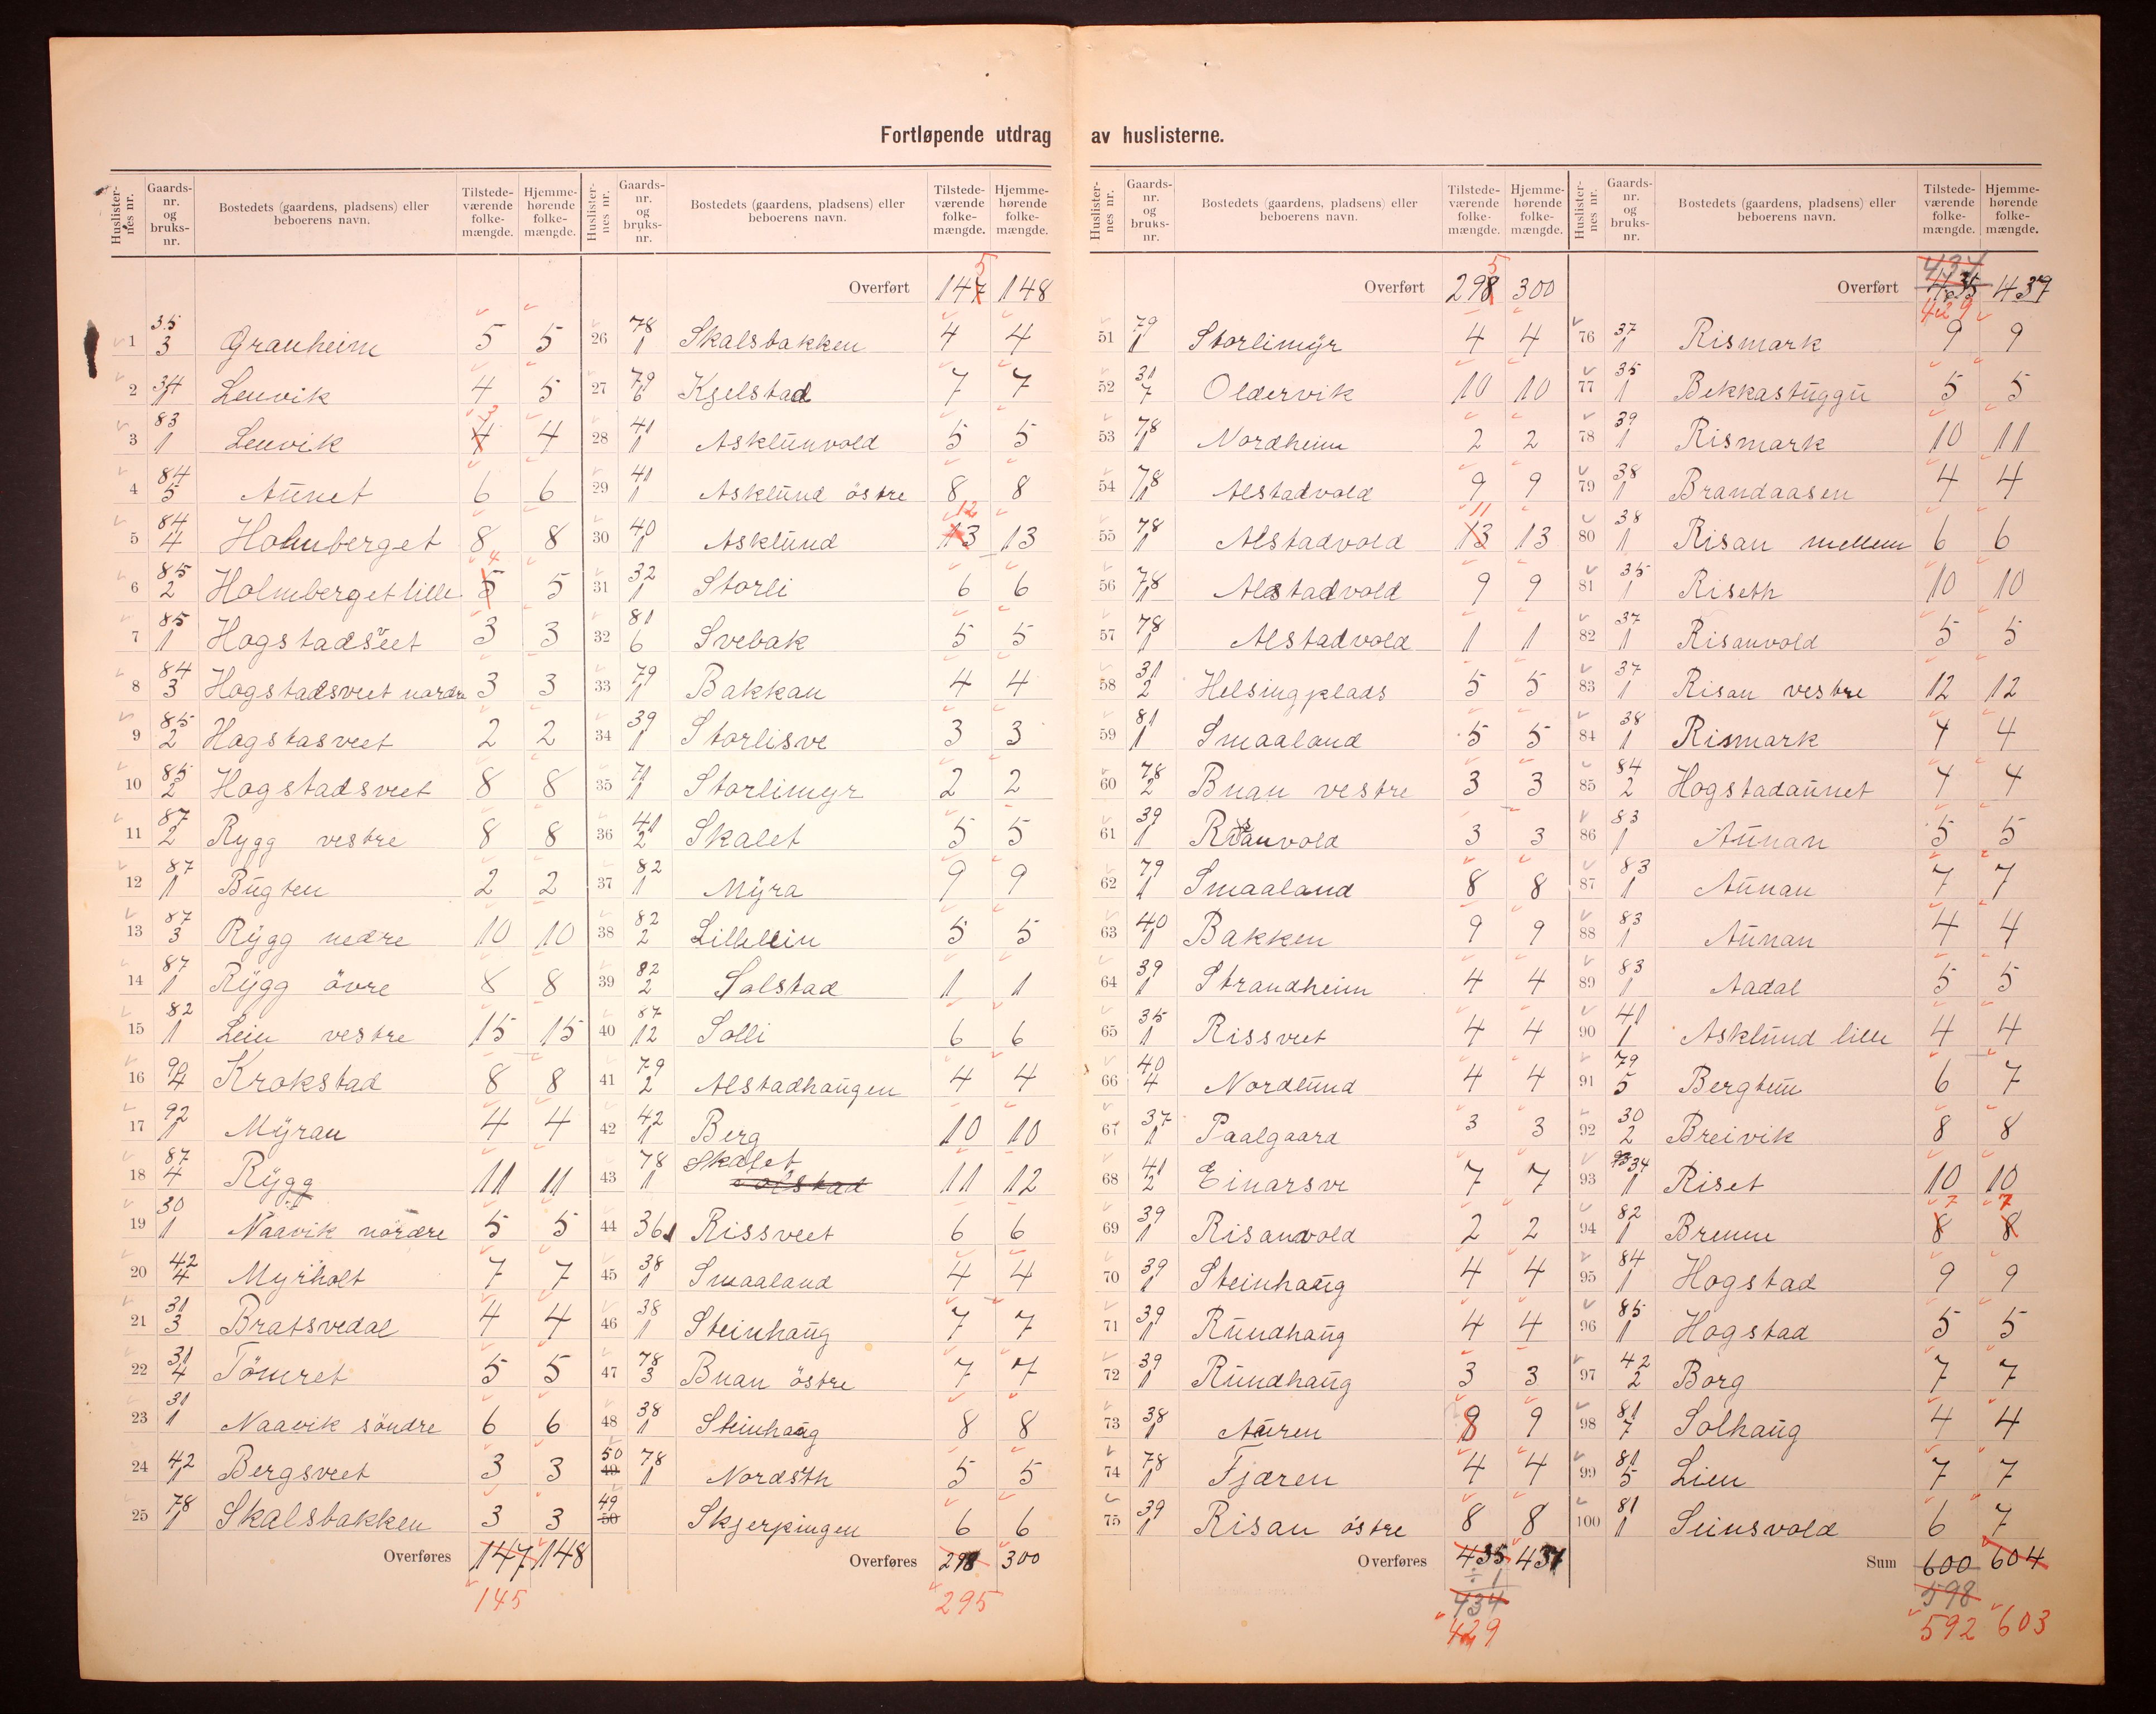 Fortløpende utdrag av huslisterne.
Huslister-nes nr. Gaards-nr. og bruks-nr. Bostedets (gaardens, pladsens) eller beboerens navn. Tilstede-værende folke-mængde. Hjemme-hørende folke-mængde.
1 35/3 Granheim 5 5
2 34/1 Leuvik 4 5
3 83/1 Leuvik 4 3 4
4 84/5 Aunet 6 6
5 84/4 Holmberget 8 8
6 85/2 Holmberget lille 5 4 5
7 85/1 Hogstadsveet 3 3
8 84/3 Hogstadsveet nordre 3 3
9 85/2 Hogstasveet 2 2
10 85/2 Hogstadsveet 8 8
11 87/2 Rygg vestre 8 8
12 87/1 Bugten 2 2
13 87/3 Rygg nedre 10 10
14 87/1 Rygg övre 8 8
15 82/1 Lein vestre 15 15
16 90/4 Krokstad 8 8
17 92/1 Myran 4 4
18 87/4 Rygg 11 11
19 30/1 Naavik nördre 5 5
20 42/4 Myrholt 7 7
21 31/3 Bratsvedal 4 4
22 31/4 Tömret 5 5
23 31/1 Naavik söndre 6 6
24 42/1 Bergsveet 3 3
25 78/1 Skalsbakken 3 3
Overføres 147 148
145
Huslister-nes nr. Gaards-nr. og bruks-nr. Bostedets (gaardens, pladsens) eller beboerens navn. Tilstede-værende folke-mængde. Hjemme-hørende folke-mængde.
Overført 147 5 148
26 78/1 Skalsbakken 4 4
27 79/6 Kjelstad 7 7
28 41/1 Asklunvold 5 5
29 41/1 Asklund östre 8 8
30 40/1 Asklund 13 12 13
31 32/1 Storli 6 6
32 81/6 Svebak 5 5
33 79/1 Bakkan 4 4
34 39/1 Storlisve 3 3
35 71/1 Storlimyr 2 2
36 41/2 Skalet 5 5
37 82/1 Myra 9 9
38 82/2 Lillelein 5 5
39 82/2 Solstad 1 1
40 87/12 Solli 6 6
41 79/2 Alstadhaugen 4 4
42 42/1 Berg 10 10
43 78/1 Skalet 11 12
44 36 1 Rissveet 6 6
45 38/1 Smaaland 4 4
46 38/1 Steinhaug 7 7
47 78/3 Buan östre 7 7
48 38/1 Steinhaug 8 8
50 49 78/1 Nordsth 5 5
49 50 Skjerpingen 6 6
Overføres 298 300
295
Huslister-nes nr. Gaards-nr. og bruks-nr. Bostedets (gaardens, pladsens) eller beboerens navn. Tilstede-værende folke-mængde. Hjemme-hørende folke-mængde.
Overført 298 5 300
51 79/1 Storlimyr 4 4
52 31/7 Oldervik 10 10
53 78/1 Nordheim 2 2
54 78/1 Alstadvold 9 9
55 78/1 Alstadvold 13 11 13
56 78/1 Alstadvold 9 9
57 78/1 Alstadvold 1 1
58 31/2 Helsingplads 5 5
59 81/1 Smaaland 5 5
60 78/2 Buan vestre 3 3
61 39/1 Risanvold 3 3
62 79/1 Smaaland 8 8
63 40/1 Bakken 9 9
64 39/1 Strandheim 4 4
65 35/1 Rissveet 4 4
66 40/4 Nordlund 4 4
67 37/1 Paalgaard 3 3
68 41/2 Einarsve 7 7
69 39/1 Risanvold 2 2
70 39/1 Steinhaug 4 4
71 39/1 Rundhaug 4 4
72 39/1 Rundhaug 3 3
73 38/1 Auren 8 9
74 78/1 Fjæren 4 4
75 39/1 Risan östre 8 8
Overføres 435 437
÷ 1
434
429
Huslister-nes nr. Gaards-nr. og bruks-nr. Bostedets (gaardens, pladsens) eller beboerens navn. Tilstede-værende folke-mængde. Hjemme-hørende folke-mængde.
434
Overført 435 437
429
76 37/1 Rismark 9 9
77 35/1 Bekkastuggu 5 5
78 39/1 Rismark 10 11
79 38/1 Brandaasen 4 4
80 38/1 Risan mellem 6 6
81 35/1 Riseth 10 10
82 37/1 Risanvold 5 5
83 37/1 Risan vestre 12 12
84 38/1 Rismark 4 4
85 84/2 Hogstadaunet 4 4
86 83/1 Aunan 5 5
87 83/1 Aunan 7 7
88 83/1 Aunan 4 4
89 83/1 Aadal 5 5
90 41/1 Asklund lille 4 4
91 79/5 Bergtun 6 7
92 30/2 Breivik 8 8
93 34/1 Riset 10 10
94 82/1 Brenne 8 7 8 7
95 84/1 Hogstad 9 9
96 85/1 Hogstad 5 5
97 42/2 Borg 7 7
98 81/7 Solhaug 4 4
99 81/5 Lien 7 7
100 81/1 Seinsvold 6 7
Sum 600 604
598
592 603